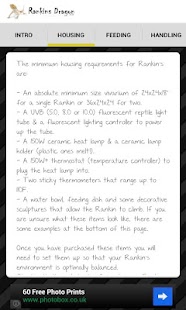 Rankins Dragon
INTRO
HOUSING
FEEDING
HANDLING
The minimum housing requirements for Rankins
are:
- An absolute minimum size vivarium of 24x24x18"
for a single Rankin or 36x24x24 for two.
- A UVB (5.0, 8.0 or 10.0) fluorescent reptile light
tube & a fluorescent lighting controller to power
up the tube.
- A 150W ceramic heat lamp & a ceramic lamp
holder (plastic ones melt!).
- A 150W+ thermostat (temperature controller) to
plug the heat lamp into.
- Two sticky thermometers that range up to
110F.
- A water bowl, feeding dish and some decorative
sculptures that allow the Rankin to climb. If you
are unsure what these items look like, there are
some examples at the bottom of this page.
Once you have purchased these items you will
need to set them up so that your Rankin's
environment is optimally balanced.
60 Free Photo Prints
www.photobox.co.uk